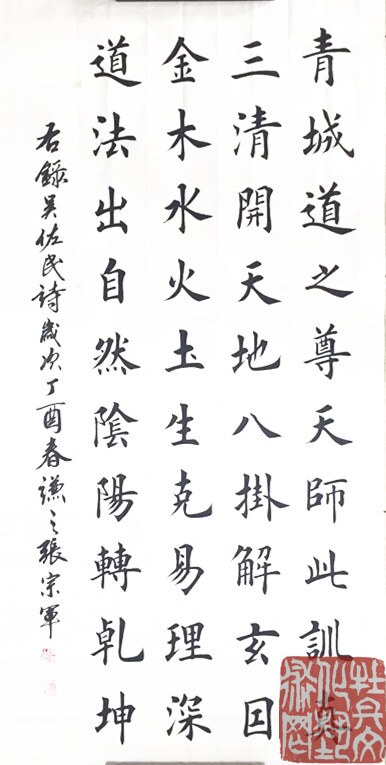 青城道之尊天師此訓
三清開天地八掛解玄囙
金木水火土生克易理深
道法出自然陰陽轉乹坤
右錄吴佐民詩歲次丁酉春謙之張宗軍